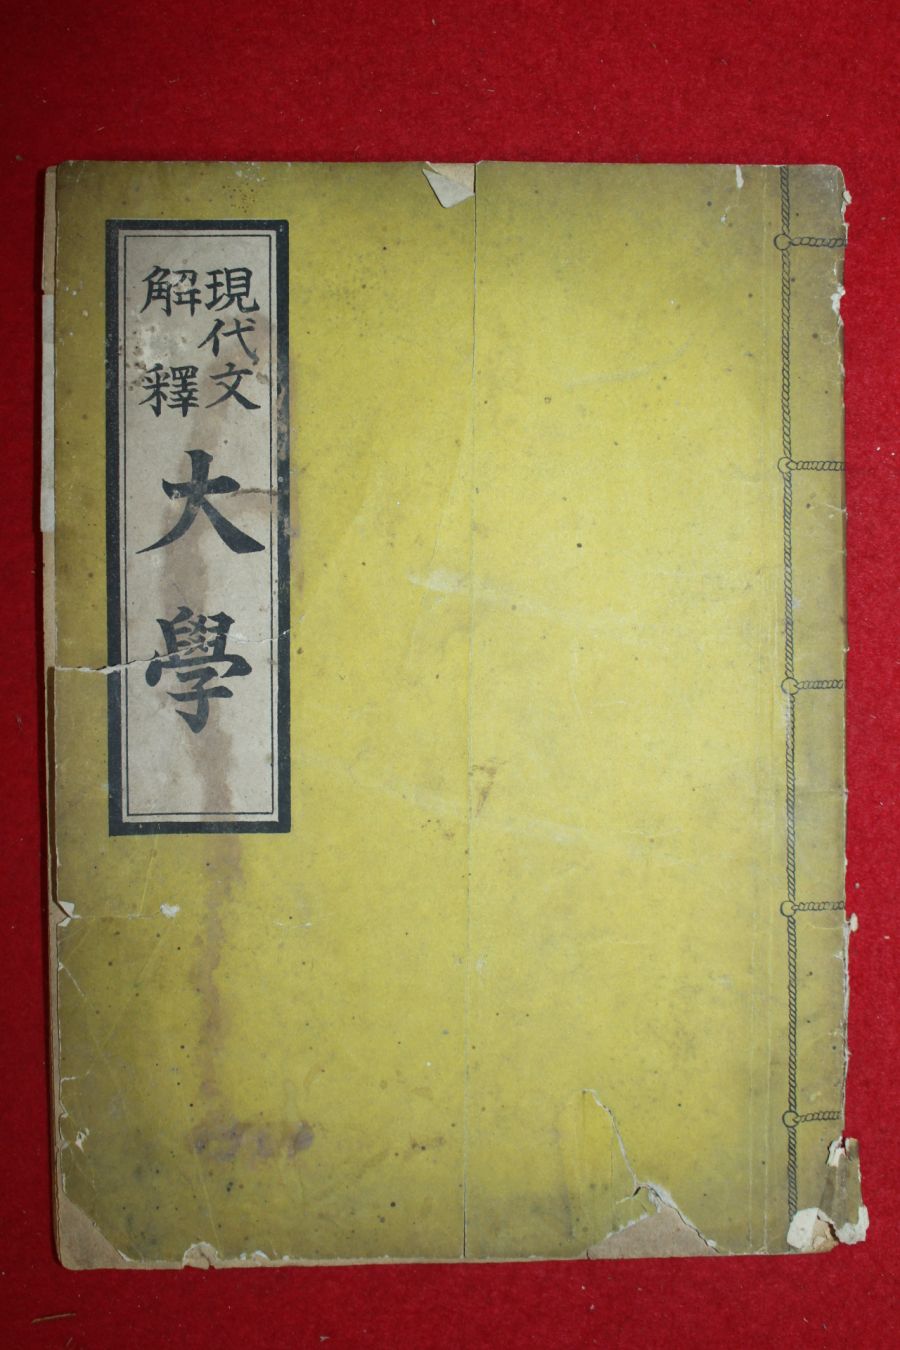 現代文
解釋
大學